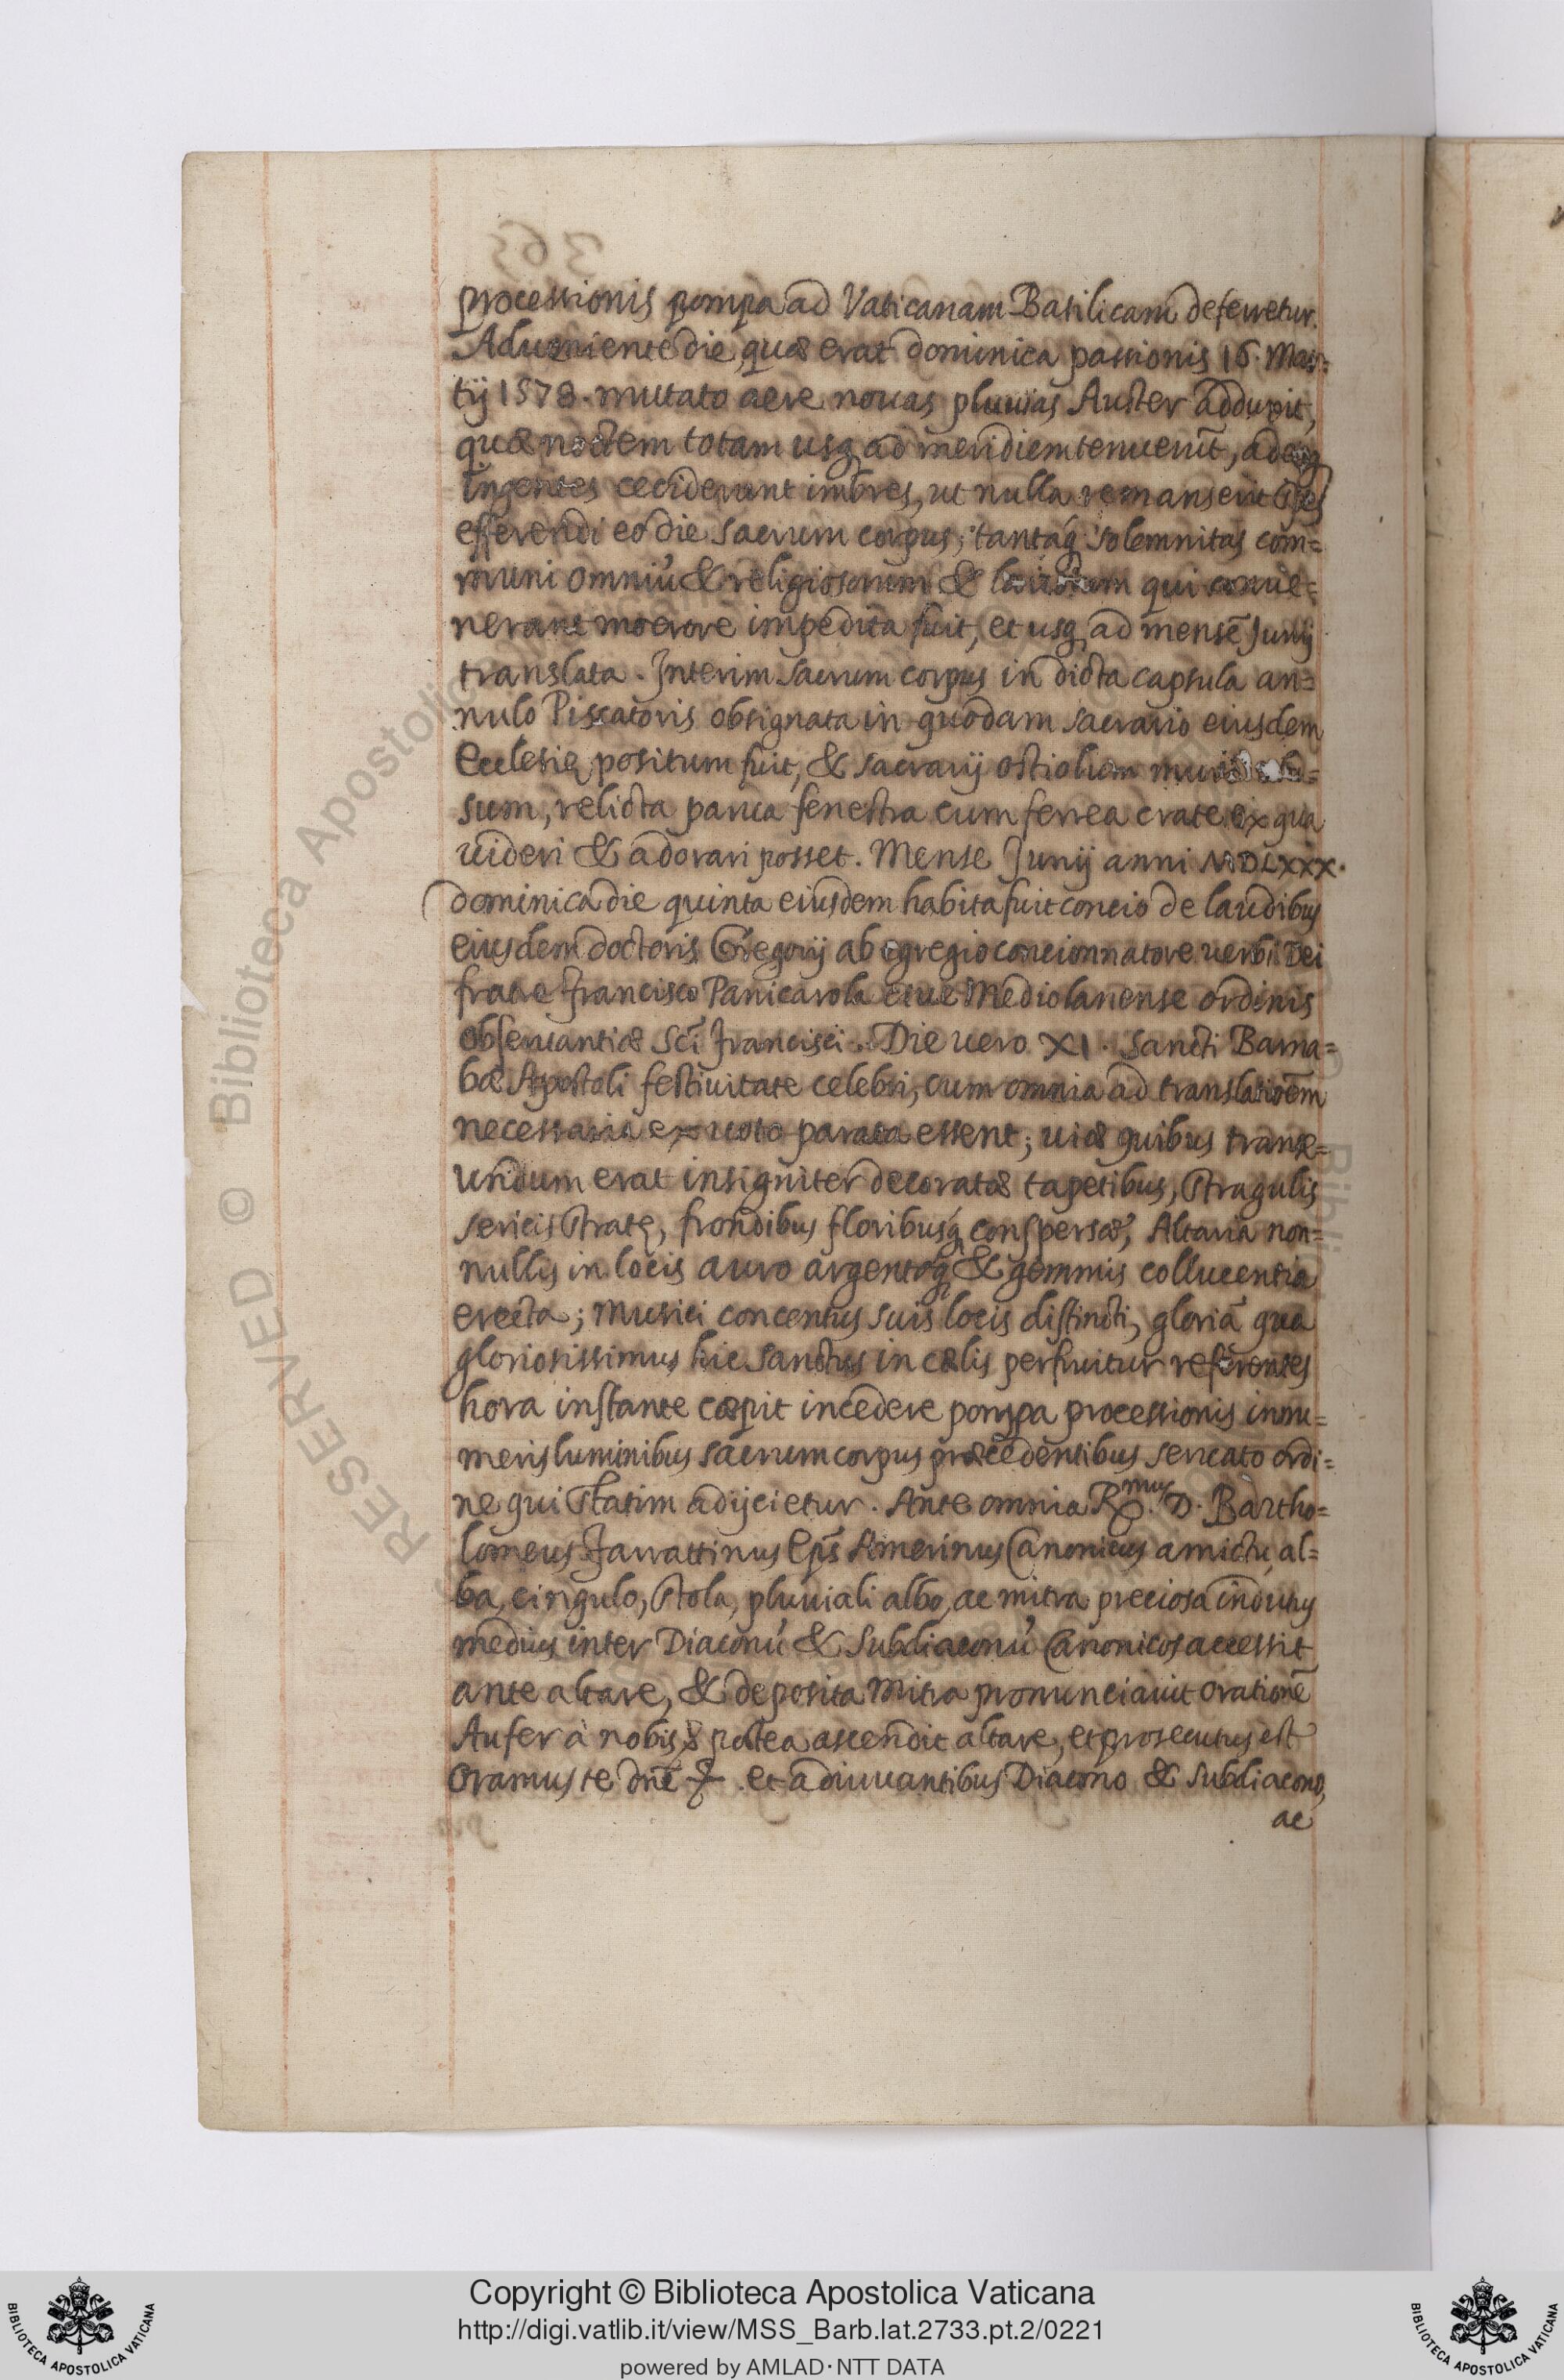 processionis pompa ad Vaticanam Basilicam deferretur.
Adueniente die, quæ erat dominica passionis 16. Mar=
tij 1578. mutato aere nouas pluuias Auster adduxit,
quæ noctem totam usq ad meridiem tenuerūt, adeoq
ingentes ceciderunt imbres, ut nulla remanserit spes
efferendi eo die sacrum corpus; tantáq solemnitas com=
muni omniū & religiosorum & laicorum qui conue=
nerant moerore impedita fuit, et usq ad mensē Junij
translata. Interim sacrum corpus in dicta capsula an=
nulo Piscatoris obsignata in quodam sacrario eiusdem
Ecclesię positum fuit, & sacrarij ostiolum muri
sum, relicta parua fenestra cum ferrea crate ex qua
uideri & adorari posset. Mense Junij anni MDLXXX.
dominica die quinta eiusdem habita fuit concio de laudibus
eiusdem doctoris Gregorij ab egregio concionnatore uerbi Dei
fratre Francisco Panicarola ciue Mediolanense ordinis
obseruantiæ Scī Francisci. Die uero XI. Sancti Barna=
bæ Apostoli festiuitate celebri, cum omnia ad translatioēm
necessaria ex uoto parata essent; uiæ quibus transe=
undum erat insigniter decoratæ tapetibus, stragulis
sericis stratę, frondibus floribusq́ conspersæ, Altaria non=
nullis in locis auro argentoq́ & gemmis collucentia
erecta; Musici concentus suis locis distincti, gloriā qua
gloriosissimus hic Sanctus in cælis perfruitur referentes
hora instante cæpit incedere pompa processionis innu=
meris luminibus sacrum corpus præcedentibus seruato ordi=
ne qui statim adijcietur. Ante omnia R.mus D. Bartho=
lomeus Farrattinus Ep̄s Amerinus Canonicus amictu, al=
ba, cingulo, stola, pluuiali albo, ac mitra preciosa indutus
medius inter Diaconū & Subdiaconū Canonicos accessit
ante altare, & deposita mitra pronunciauit orationē
Aufer à nobis & postea ascendit altare, et prosecutus est
Oramus te dn̄e et adiuuantibus Diacono & Subdiacono,
ac
Copyright © Biblioteca Apostolica Vaticana
http://digi.vatlib.it/view/MSS_Barb.lat.2733.pt.2/0221
powered by AMLAD·NTT DATA
BIBLIOTECA APOSTOLICA VATICANA
BIBLIOTECA APOSTOLICA VATICANA
RESERVED © Biblioteca Apostolica